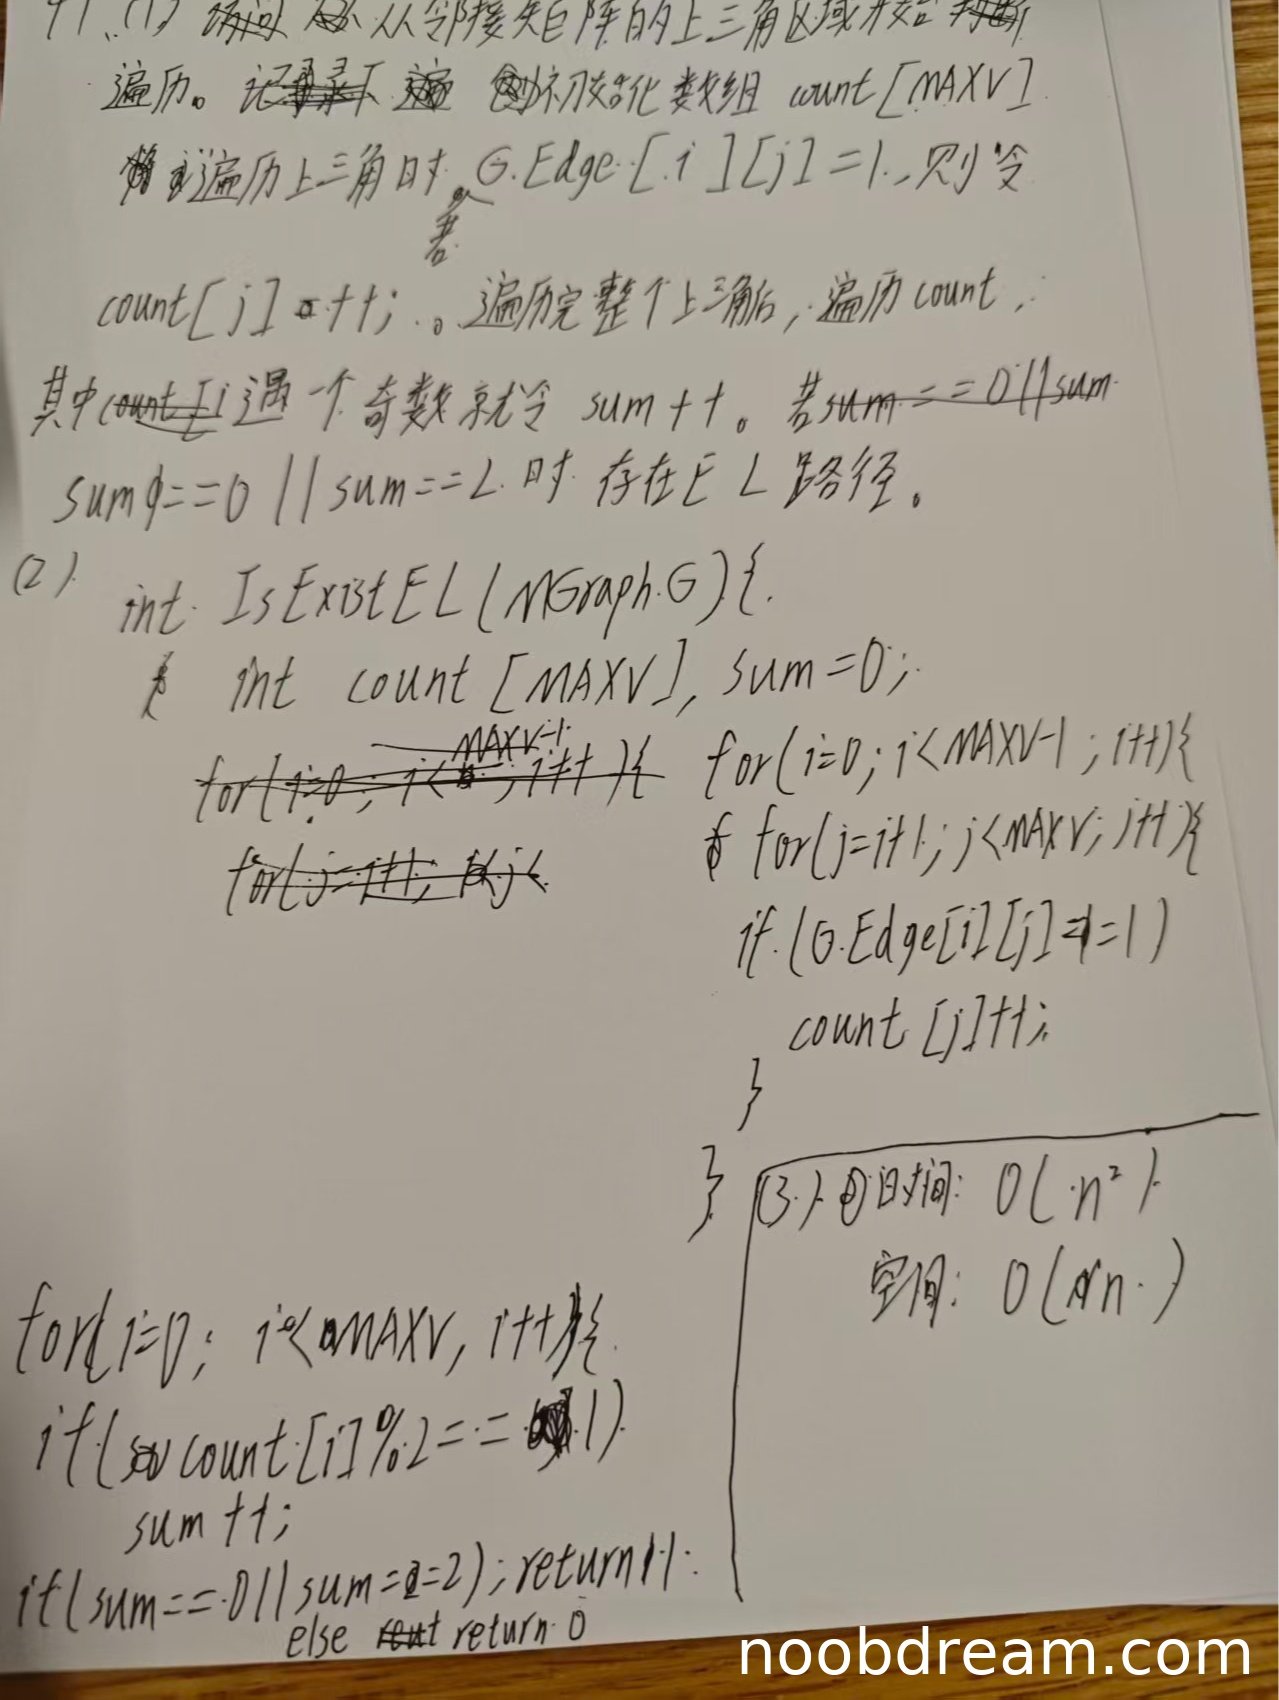 41、(1) 从邻接矩阵的上三角区域开始
遍历。初始化数组 count[MAXV]
遍历上三角时,若G.Edge[i][j]=1,则令
count[j]++;。遍历完整个上三角后,遍历count,
其中遇一个奇数就令 sum++。若
sum==0||sum==2时存在EL路径。
(2).
int IsExistEL(MGraph G){
int count[MAXV], sum=0;
for(i=0; i<MAXV-1; i++){
for(j=i+1; j<MAXV; j++){
if(G.Edge[i][j]==1)
count[j]++;
}
}
for(i=0; i<MAXV, i++){
if(count[i]%2==1)
sum++;
if(sum==0||sum==2);return 1;
else return 0
(3) 时间: O(n²)
空间: O(n)
noobdream.com